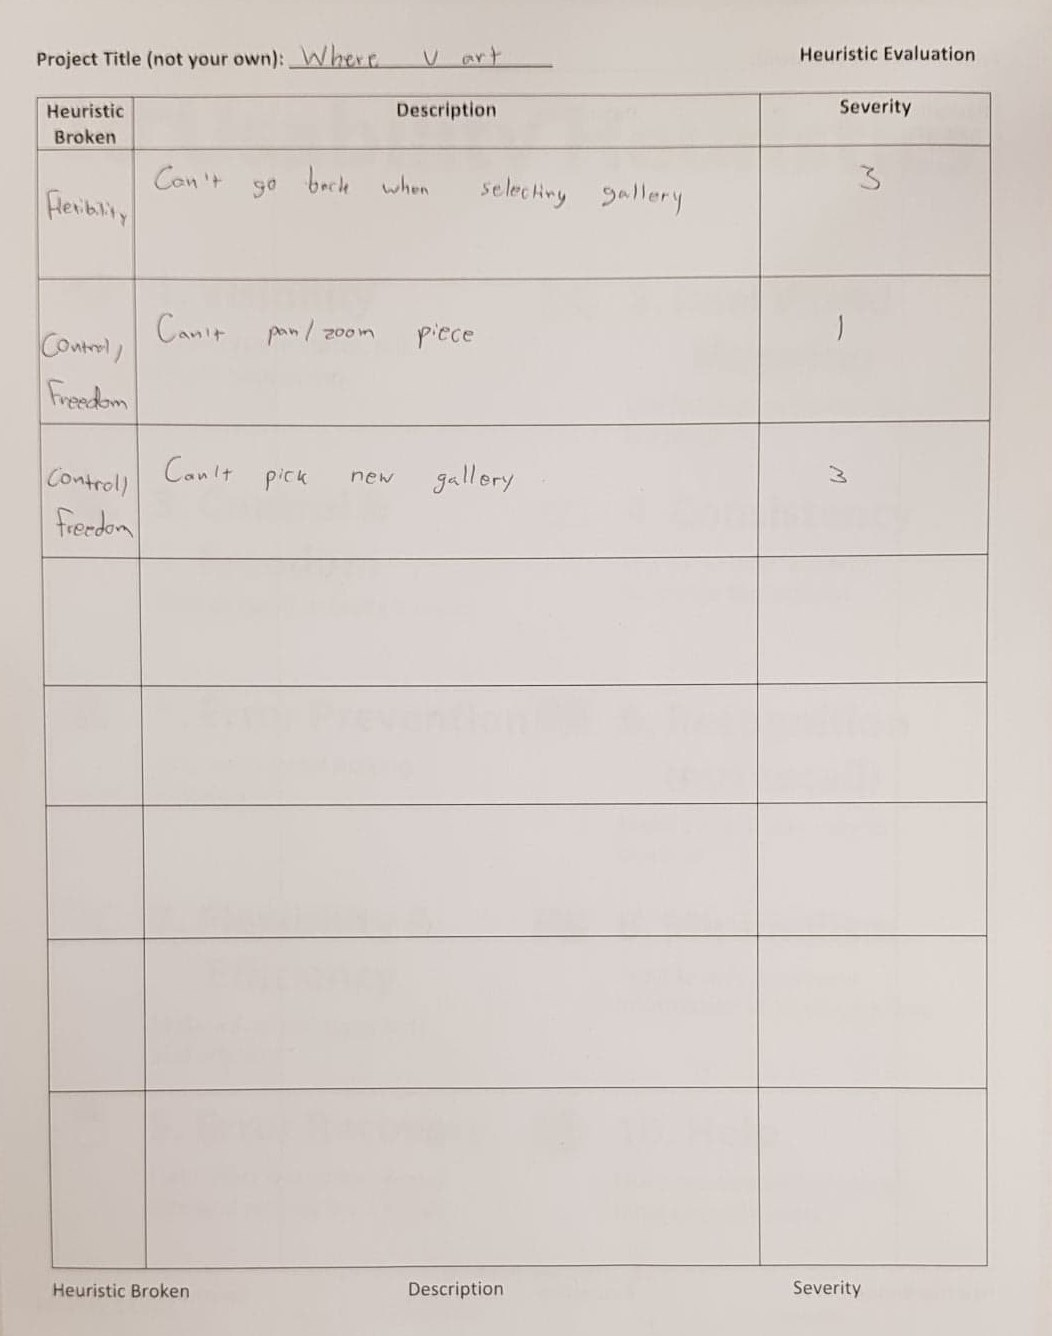 Project Title (not your own): Where U art
Heuristic Evaluation
Heuristic Broken
Description
Severity
Flexibility
Can't go back when selecting gallery
3
Control/
Freedom
Can't pan/zoom piece
1
Control/
Freedom
Can't pick new gallery
3
Heuristic Broken
Description
Severity